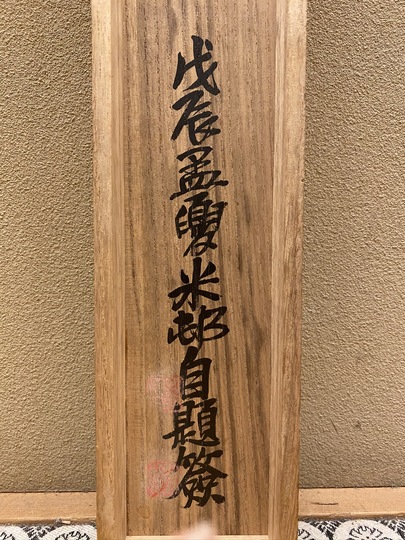 戊辰孟夏米邨自題簽